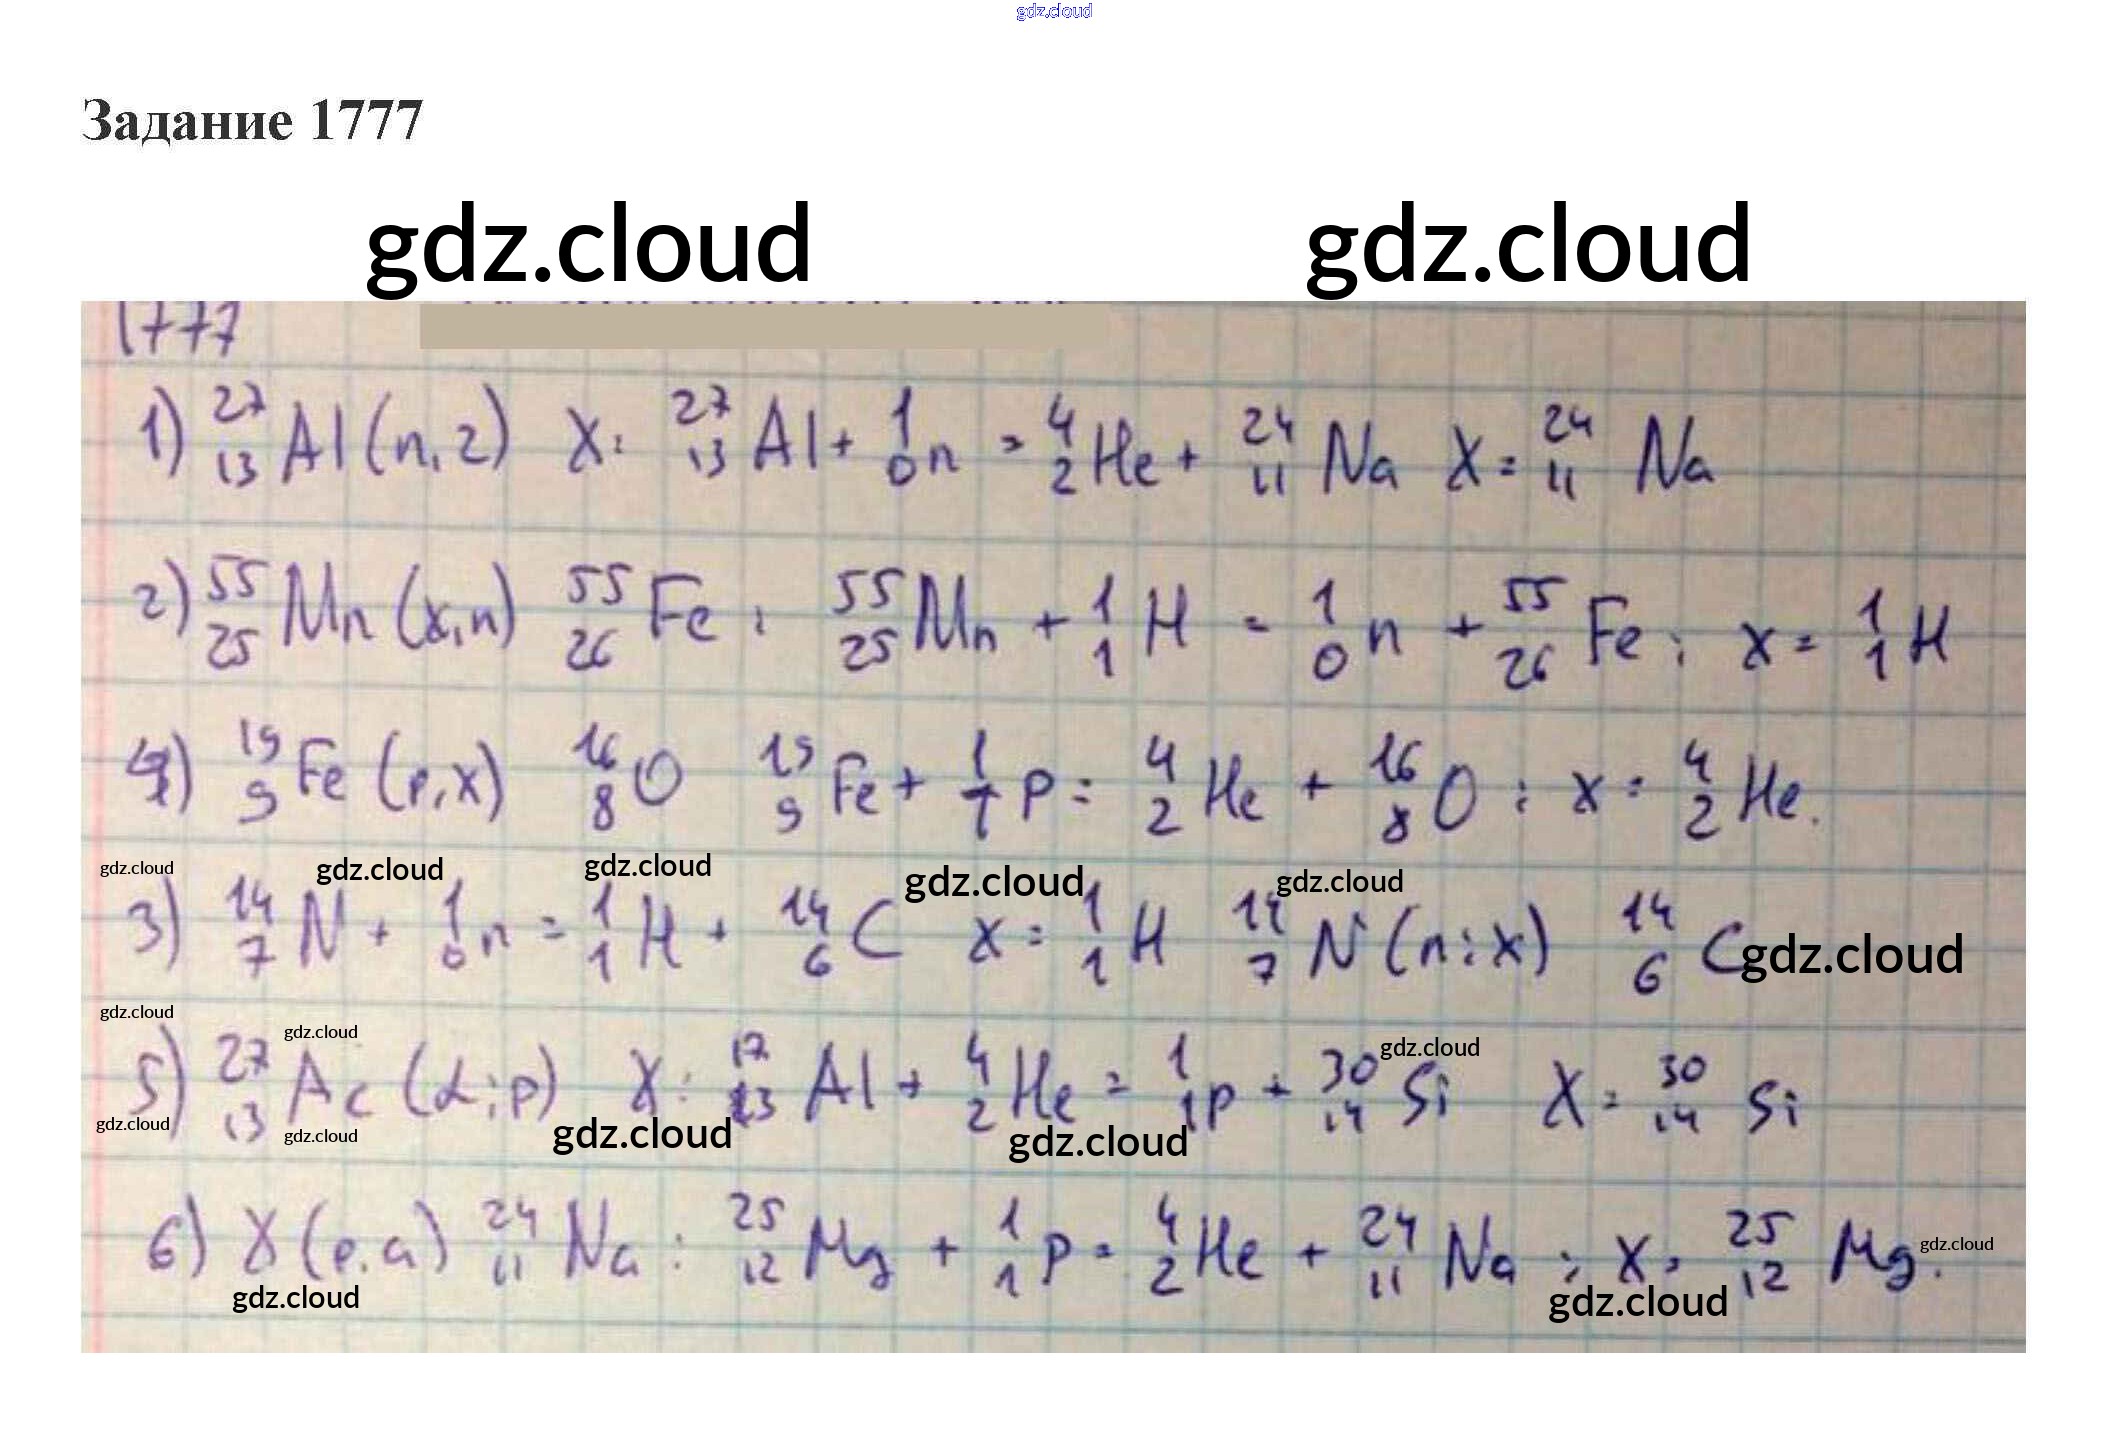 gdz.cloud
Задание 1777
gdz.cloud gdz.cloud
1777
1) ²⁷₁₃Al (n, 2) X: ²⁷₁₃Al + ¹₀n = ⁴₂He + ²⁴₁₁Na X = ²⁴₁₁Na
2) ⁵⁵₂₅Mn (x, n) ⁵⁵₂₆Fe : ⁵⁵₂₅Mn + ¹₁H = ¹₀n + ⁵⁵₂₆Fe ; x = ¹₁H
4) ¹⁹₉Fe (p, x) ¹⁶₈O ¹⁹₉Fe + ¹₁p = ⁴₂He + ¹⁶₈O : x = ⁴₂He.
gdz.cloud gdz.cloud gdz.cloud gdz.cloud gdz.cloud
3) ¹⁴₇N + ¹₀n = ¹₁H + ¹⁴₆C x = ¹₁H ¹⁴₇N (n; x) ¹⁴₆C gdz.cloud
gdz.cloud gdz.cloud gdz.cloud
5) ²⁷₁₃Ac (α; p) X: ¹⁷₁₃Al + ⁴₂He = ¹₁p + ³⁰₁₄Si X = ³⁰₁₄Si
gdz.cloud gdz.cloud gdz.cloud gdz.cloud
6) X (p, a) ²⁴₁₁Na : ²⁵₁₂Mg + ¹₁p = ⁴₂He + ²⁴₁₁Na ; X = ²⁵₁₂Mg. gdz.cloud
gdz.cloud gdz.cloud